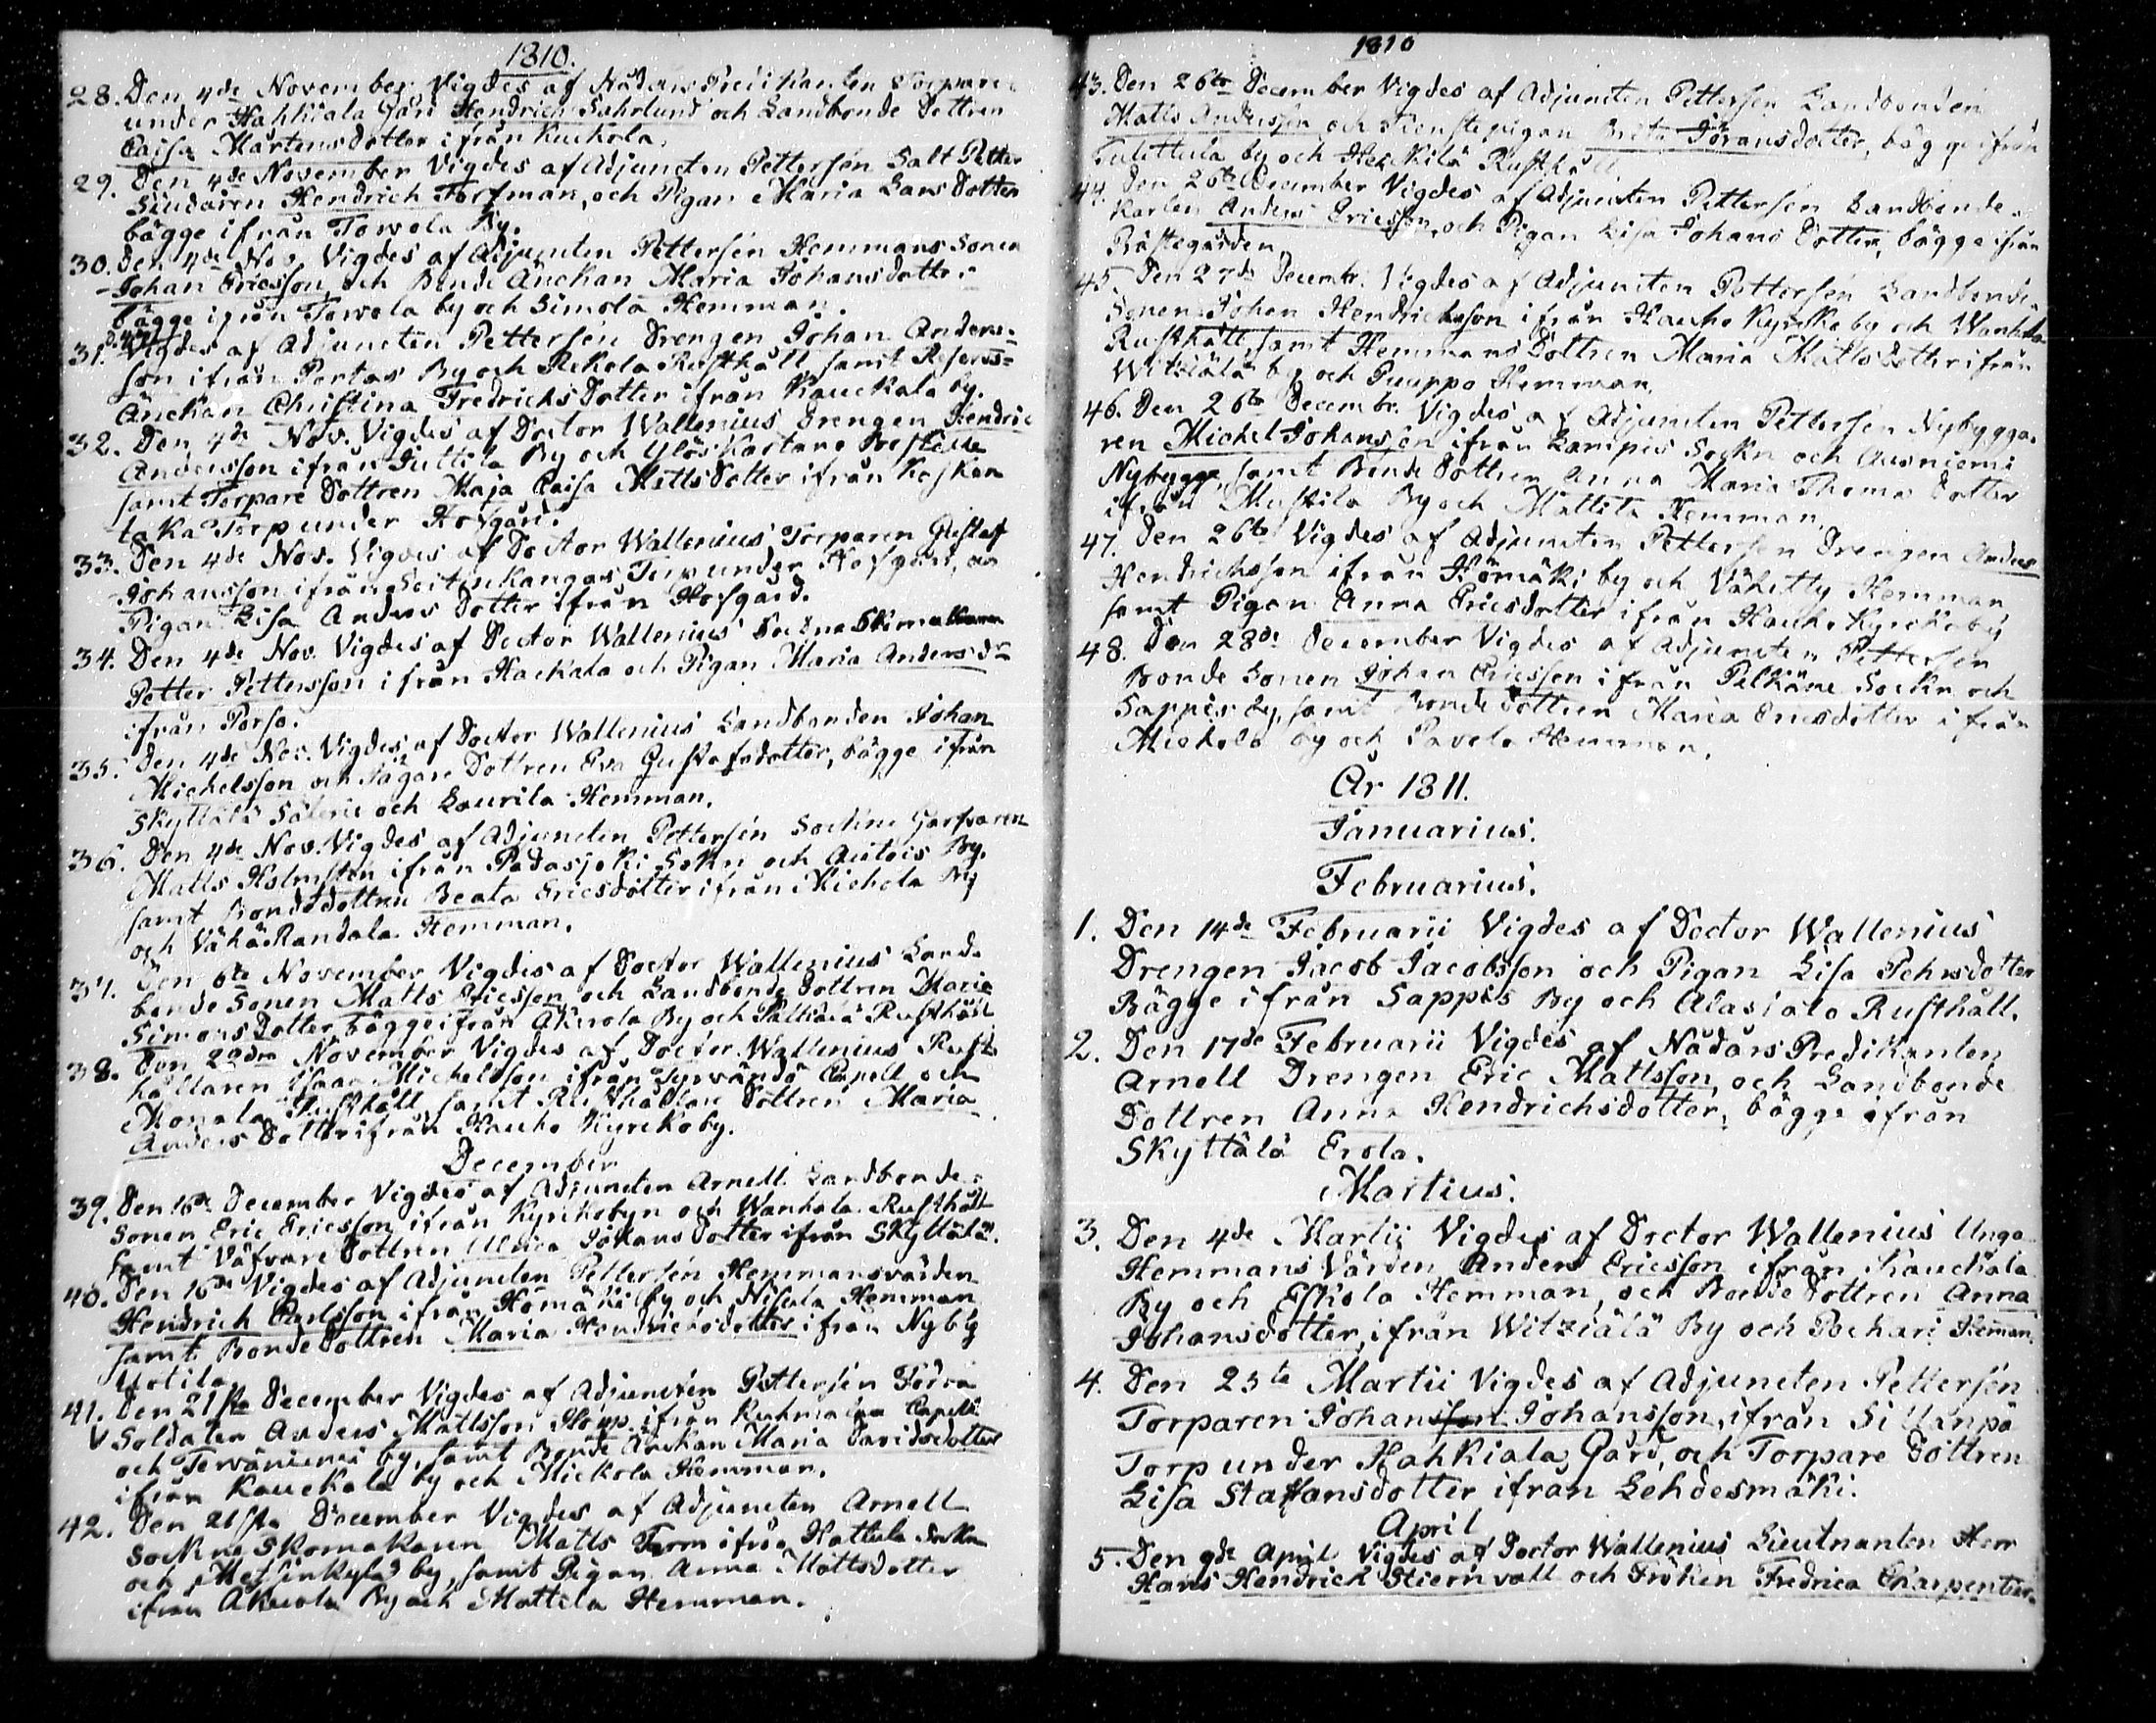 1810.
28. Den 4de November Vigdes af Nådårs Predikanten Torparen
under Hahkiala Gård Hendrich Sahrlund och Landbonde Dottren
Caisa Mårtensdotter ifrån Kuckola.
29. Den 4de November Vigdes af Adjuncten Pettersén Salt Petter
Siudaren Hendrich Forsman, och Pigan Maria Lars Dotter
bägge ifrån Towola By.
30. Den 4de Nov. Vigdes af Adjuncten Pettersén Hemmans Sonen
Johan Ericsson, och Bonde Änckan Maria Johansdotter
bägge ifrån Towola by och Simola Hemman.
31. Vigdes af Adjuncten Pettersén Drengen Johan Anders-
son ifrån Portas By och Rekola Rusthåll samt Reserfs-
Änckan Christina Fredrichs Dotter ifrån Kauckala by.
32. Den 4de Nov. Vigdes af Doctor Wallenius Drengen Hendric
Andersson ifrån Juttila By och Ylöskartano Boställe
samt Torpare Dottren Maja Caisa MattsDotter ifrån Kosken
taka Torp under Hofgård.
33. Den 4de Nov. Vigdes af Doctor Wallenius Torparen Gustaf
Johansson ifrån Soitinkangas Torp under Hofgård, och
Pigan Lisa Anders Dotter ifrån Hofgård.
34. Den 4de Nov. Vigdes af Doctor Wallenius Sockne
Petter Pettersson ifrån Kackala och Pigan Maria Andersdr
ifrån Porso.
35. Den 4de Nov. Vigdes af Doctor Wallenius Landbonden Johan
Michelsson och Sågare Dottren Eva Gustafsdotter, bägge ifrån
Skyttälä Säterie och Laurila Hemman.
36. Den 4de Nov. Vigdes af Adjuncten Pettersén Sockne Garfvaren
Matts Holmstén ifrån Padasjoki Sokn och Autois By.
samt Bondedottren Beata Ericsdotter ifrån Mickola By
och Vähä Randala Hemman.
37. Den 6te November Vigdes af Doctor Wallenius Land-
bonde Sonen Matts Ericsson, och Landbonde Dottren Maria
Simons Dotter, bägge ifrån Okerola By och Rusthåll
38. Den 22dra November Vigdes af Doctor Wallenius Rust-
hållaren Isaac Michelsson ifrån Syrvändö Capell och
Monala Rusthåll, samt Rusthållare Dottren Maria
Anders Dotter ifrån Hauho Kyrckoby.
December
39. Den 16de December Vigdes af Adjuncten Arnell Landbonde-
Sonen Eric Ericsson ifrån Kyrckobyn och Wanhala Rusthåll
samt Väfvare Dottren Ulrica Johans Dotter ifrån Skyttälä.
40. Den 16de Vigdes af Adjuncten Pettersén Hemmansvärden
Hendrich Carlsson ifrån Hömäki by och Nisula Hemman
samt Bonde Dottren Maria Hendrichsdotter ifrån Nyby
Uotila.
41. Den 21sta December Vigdes af Adjuncten Pettersén Förra
V Soldaten Anders Mattsson Klump ifrån Kuhmalax Capell
och Terväniemi by, samt Bonde Änckan Maria Davidsdotter
ifrån Kauckala by och Mickola Hemman.
42. Den 21sta December Vigdes af Adjuncten Arnell
Sockne Skomakaren Matts Form ifrån Hattula Sockn
och Metsänkylä by, samt Pigan Anna Mattsdotter
ifrån Okerola By och Mattila Hemman.
1810
43. Den 26te December Vigdes af Adjuncten Pettersén Landbonden
Matts Andersson och Tienstepigan Brita Göransdotter, bägge ifrån
Tulettula by och Heickilä Rusthåll
44. Den 26te December Vigdes af Adjuncten Pettersén Landbonde-
Karlen Anders Ericsson, och Pigan Lisa Johans Dotter, bägge ifrån
Prästegården.
45. Den 27de Decembr. Vigdes af Adjuncten Pettersén Landbonde-
Sonen Johan Hendrichsson ifrån Hauho Kyrckoby och Wanhala
Rusthåll, samt Hemmans Dottren Maria Matts Dotter ifrån
Witziälä by och Puuppo Hemman.
46. Den 26te Decembr. Vigdes af Adjuncten Pettersén Nybygga-
ren Michel Johansson ifrån Lampis Sockn och Ausniemi
Nybygge, samt Bonde Dottren Anna Maria Thomæ Dotter
ifrån Mustila By och Mattila Hemman.
47. Den 26te Vigdes af Adjuncten Pettersén Drengen Anders
Hendrichsson ifrån Hömäki by och Vähetty Hemman
samt Pigan Anna Ericsdotter ifrån Hauho Kyrckoby
48. Den 28de December Vigdes af Adjuncten Pettersén
Bonde Sonen Johan Ericsson ifrån Pelkäne Sockn och
Sappis by, samt Bonde Dottren Maria Ericsdotter ifrån
Mickola by och Pavola Hemman.
År 1811.
Januarius.
Februarius.
1. Den 14de Februarii Vigdes af Doctor Wallenius
Drengen Jacob Jacobsson och Pigan Lisa Pehrsdotter
Bägge ifrån Sappis By och Alasialo Rusthåll.
2. Den 17de Februarii Vigdes af Nådårs Predikanten
Arnell Drengen Eric Mattsson, och Landbonde
Dottren Anna Hendrichsdotter, bägge ifrån
Skyttälä Erola.
Martius.
3. Den 4de Martii Vigdes af Doctor Wallenius Unga
Hemmans Värden Anders Ericsson ifrån Kauckala
By och Eskola Hemman, och Bonde Dottren Anna
Johansdotter, ifrån Witziälä By och Pochari Hemman.
4. Den 25te Martii Vigdes af Adjuncten Pettersén
Torparen Johansson Johansson, ifrån Sillanpä
Torp under Hahkiala Gård, och Torpare Dottren
Lisa Staffansdotter ifrån Lehdesmäki.
April
5. Den 9de April Vigdes af Doctor Wallenius Lieutnanten Herr
Hans Hendrich Stiernvall och Fröken Fredrica Charpentier.